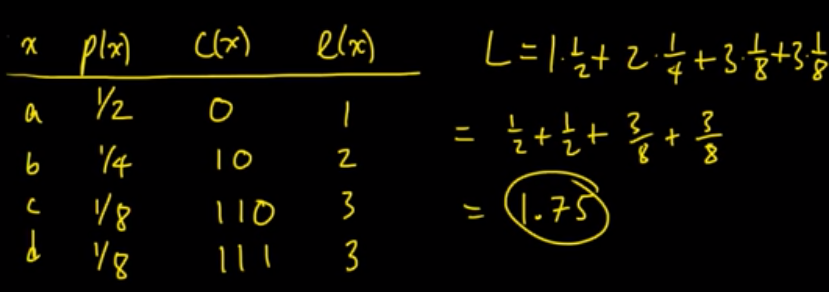 x p(x) C(x) l(x)
a 1/2 0 1
b 1/4 10 2
c 1/8 110 3
d 1/8 111 3
L = 1·1/2 + 2·1/4 + 3·1/8 + 3·1/8
= 1/2 + 1/2 + 3/8 + 3/8
= 1.75